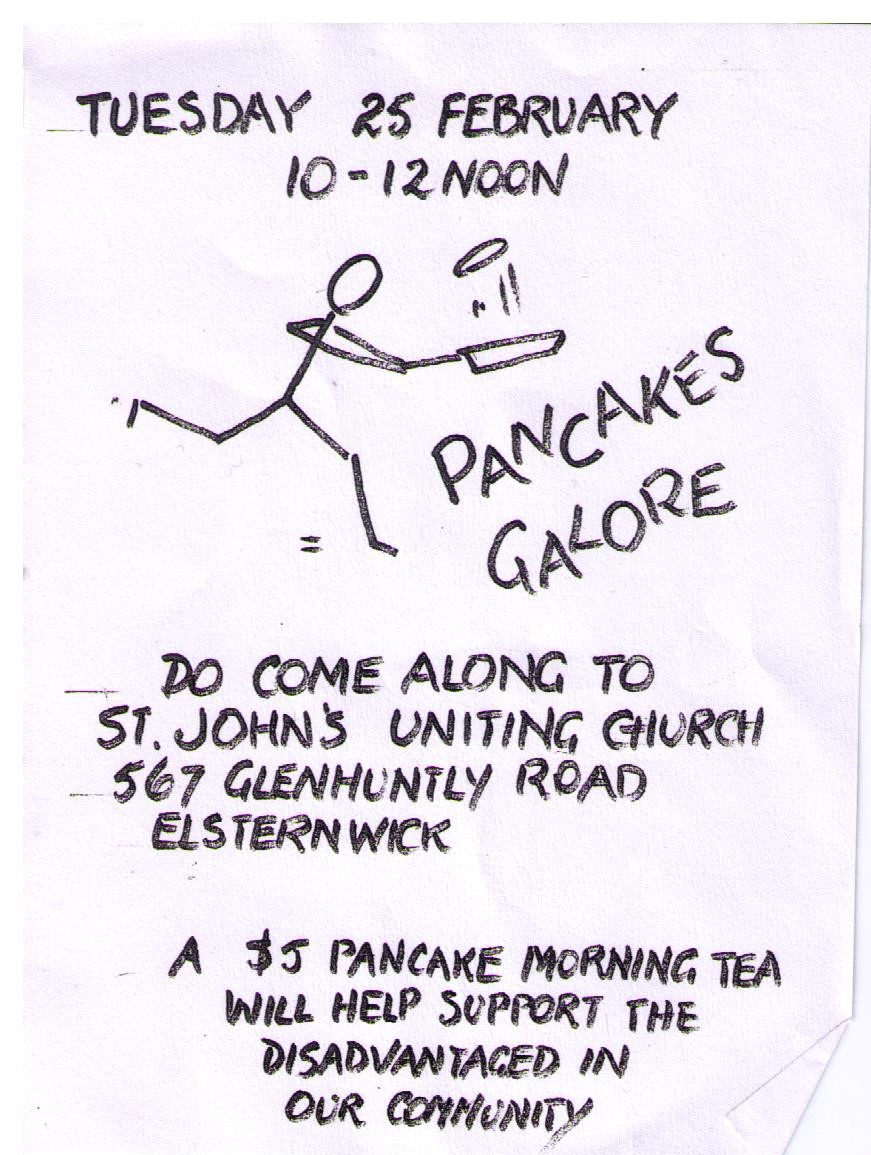 TUESDAY 25 FEBRUARY
10-12 NOON
PANCAKES
GALORE
DO COME ALONG TO
ST. JOHN'S UNITING CHURCH
567 GLENHUNTLY ROAD
ELSTERNWICK
A $5 PANCAKE MORNING TEA
WILL HELP SUPPORT THE
DISADVANTAGED IN
OUR COMMUNITY